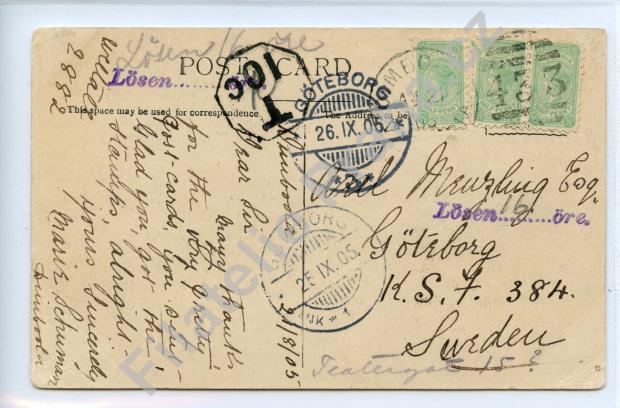 Lösen 16 öre
POST CARD
Lösen............öre.
This space may be used for correspondence
The Address to be
10c
T
GÖTEBORG
26.IX.05
GÖTEBORG
25.IX.05.
1
Dimboola
21/8/05
Dear Sir
Many thanks
for the very pretty
Post-cards. You sent
Glad you got the
Stamps, alright.
Yours Sincerely
Marie Schuman
Dimboola
2882
Axel Menzling Esq.
Lösen 16 öre.
Göteborg
K.S.F. 384.
Sweden
Teatergat 15
Filatelie